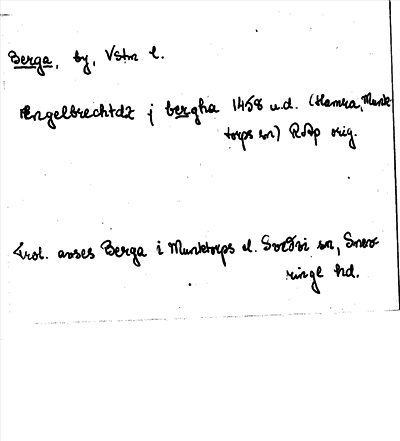 Berga, by, Vstm l.
Ængelbrechtdz j bergha 1458 u.d. (Hamra, Munk
torps sn) RAp orig.
Trol. avses Berga i Munktorps el. Svedvi sn, Snev
ringe hd.